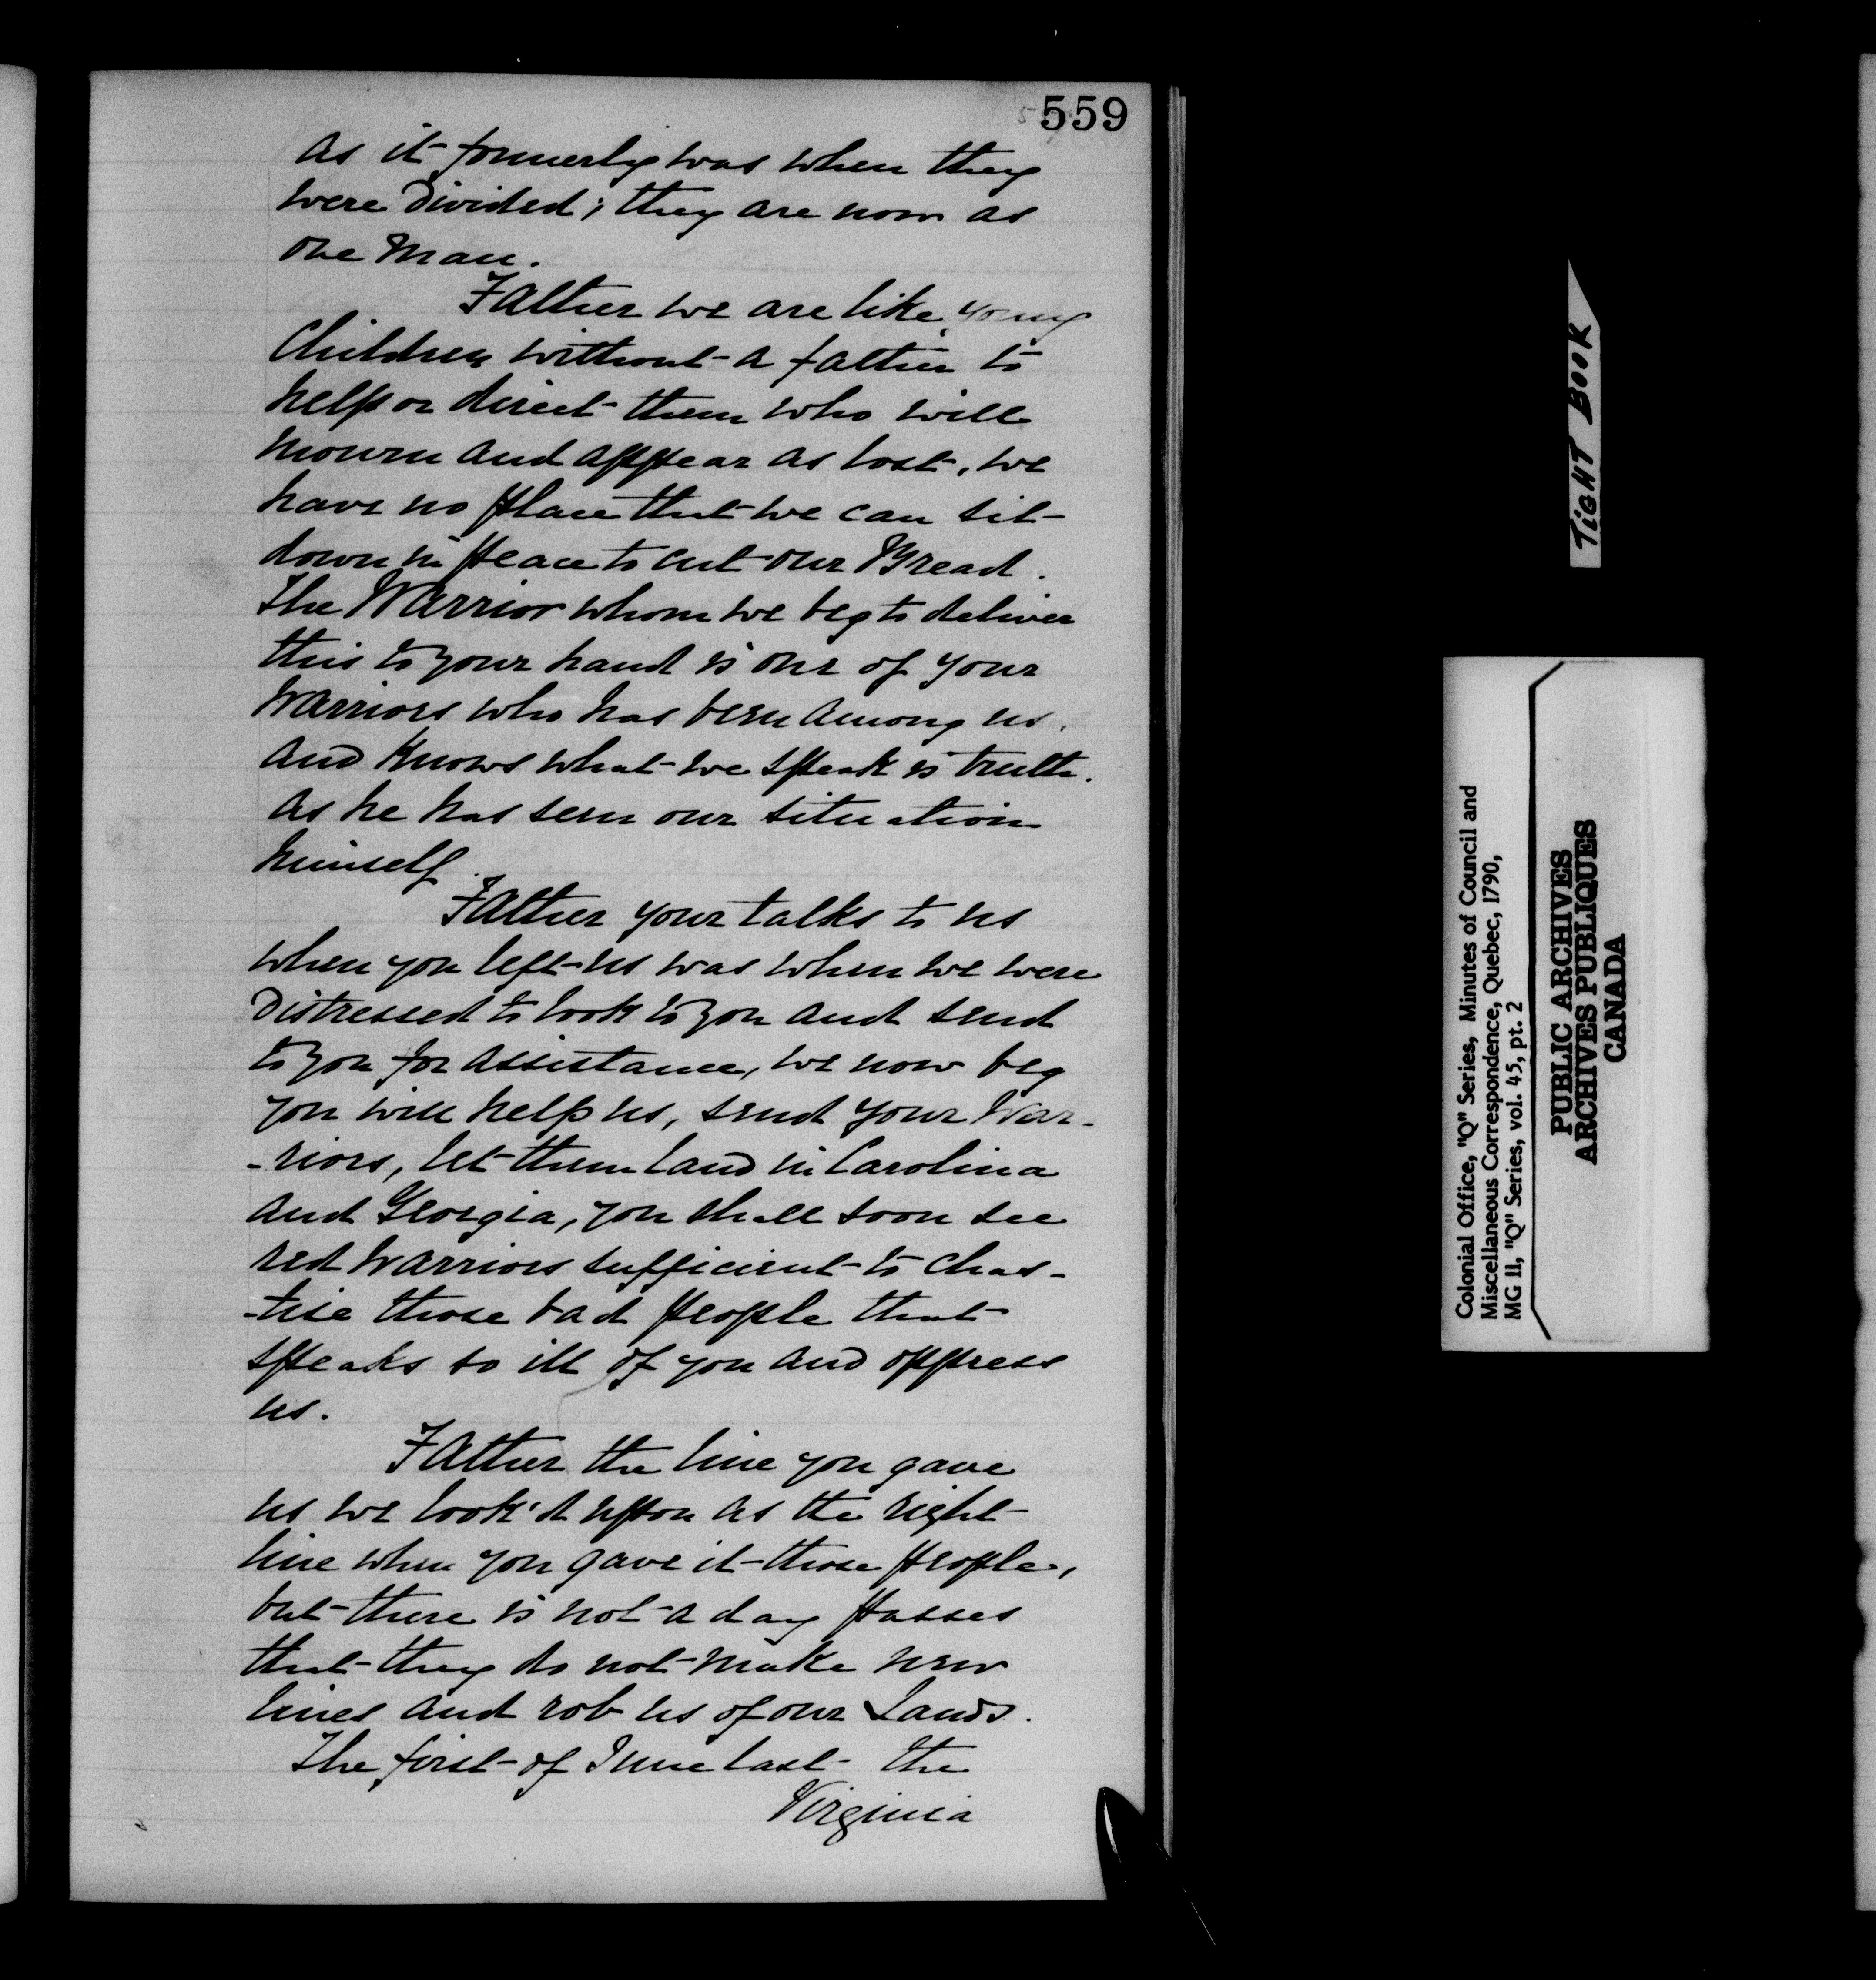 559
as it formerly was when they
were Divided; they are now as
one Man.
Father we are like young
Children without a father to
help or direct them who will
mourn and appear as lost, we
have no place that we can sit
down in peace to eat our Bread.
The Warrior whom we beg to deliver
this to your hand is one of your
Warriors who has been among us,
and knows what we speak is truth.
As he has seen our situation
himself.
Father your talks to us
when you left us was when we were
Distressed to look to you and send
to you for assistance, we now beg
you will help us, send your War-
-riors, let them land in Carolina
and Georgia, you shall soon see
red Warriors sufficient to chas-
-tise those bad people that
speaks so ill of you and oppress
us.
Father the line you gave
us we look'd upon as the right
line when you gave it those people,
but there is not a day passes
that they do not make new
lines and rob us of our Lands.
The first of June last the
Virginia
TIGHT BOOK
Colonial Office, "Q" Series, Minutes of Council and
Miscellaneous Correspondence, Quebec, 1790,
MG 11, "Q" Series, vol. 45, pt. 2
PUBLIC ARCHIVES
ARCHIVES PUBLIQUES
CANADA